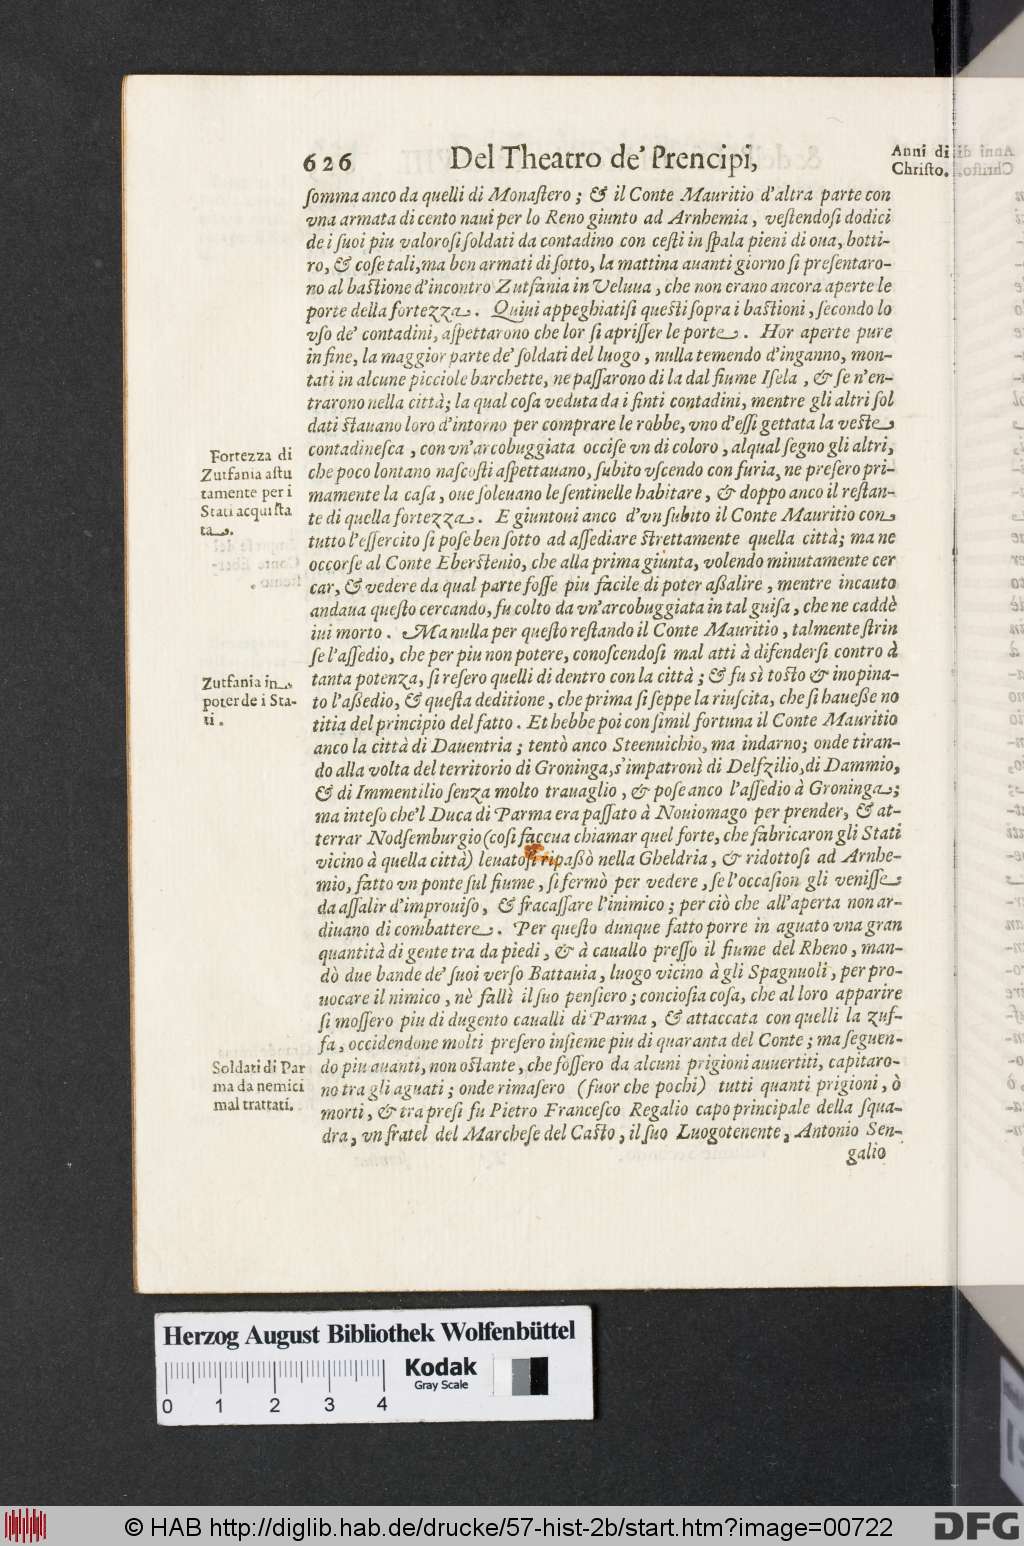 626 Del Theatro de' Prencipi,
Anni di
Christo.
ſomma anco da quelli di Monaſtero; & il Conte Mauritio d'altra parte con
vna armata di cento naui per lo Reno giunto ad Arnhemia, veſtendoſi dodici
de i ſuoi piu valoroſi ſoldati da contadino con ceſti in ſpala pieni di oua, botti-
ro, & coſe tali, ma ben armati di ſotto, la mattina auanti giorno ſi preſentaro-
no al baſtione d'incontro Zutfania in Veluua, che non erano ancora aperte le
porte della fortezza. Quiui appeghiatiſi queſti ſopra i baſtioni, ſecondo lo
vſo de' contadini, aſpettarono che lor ſi apriſſer le porte. Hor aperte pure
in fine, la maggior parte de' ſoldati del luogo, nulla temendo d'inganno, mon-
tati in alcune picciole barchette, ne paſſarono di la dal fiume Iſela, & ſe n'en-
trarono nella città; la qual coſa veduta da i finti contadini, mentre gli altri ſol
dati ſtauano loro d'intorno per comprare le robbe, vno d'eſſi gettata la veſte
contadineſca, con vn'arcobuggiata occiſe vn di coloro, al qual ſegno gli altri,
che poco lontano naſcoſti aſpettauano, ſubito vſcendo con furia, ne preſero pri-
mamente la caſa, oue ſoleuano le ſentinelle habitare, & doppo anco il reſtan-
te di quella fortezza. E giuntoui anco d'vn ſubito il Conte Mauritio con
tutto l'eſſercito ſi poſe ben ſotto ad aſſediare ſtrettamente quella città; ma ne
occorſe al Conte Eberſtenio, che alla prima giunta, volendo minutamente cer
car, & vedere da qual parte foſſe piu facile di poter aßalire, mentre incauto
andaua queſto cercando, fu colto da vn'arcobuggiata in tal guiſa, che ne caddè
iui morto. Ma nulla per queſto reſtando il Conte Mauritio, talmente ſtrin
ſe l'aſſedio, che per piu non potere, conoſcendoſi mal atti à difenderſi contro à
tanta potenza, ſi reſero quelli di dentro con la città; & fu sì toſto & inopina-
to l'aßedio, & queſta deditione, che prima ſi ſeppe la riuſcita, che ſi haueße no
titia del principio del fatto. Et hebbe poi con ſimil fortuna il Conte Mauritio
anco la città di Dauentria; tentò anco Steenuichio, ma indarno; onde tiran-
do alla volta del territorio di Groninga, s'impatronì di Delfzilio, di Dammio,
& di Immentilio ſenza molto trauaglio, & poſe anco l'aſſedio à Groninga;
ma inteſo che'l Duca di Parma era paſſato à Nouiomago per prender, & at-
terrar Nodſemburgio (coſi faceua chiamar quel forte, che fabricaron gli Stati
vicino à quella città) leuatoſi ripaßò nella Gheldria, & ridottoſi ad Arnhe-
mio, fatto vn ponte ſul fiume, ſi fermò per vedere, ſe l'occaſion gli veniſſe
da aſſalir d'improuiſo, & fracaſſare l'inimico; per ciò che all'aperta non ar-
diuano di combattere. Per queſto dunque fatto porre in aguato vna gran
quantità di gente tra da piedi, & à cauallo preſſo il fiume del Rheno, man-
dò due bande de' ſuoi verſo Battauia, luogo vicino à gli Spagnuoli, per pro-
uocare il nimico, nè fallì il ſuo penſiero; concioſia coſa, che al loro apparire
ſi moſſero piu di dugento caualli di Parma, & attaccata con quelli la zuf-
fa, occidendone molti preſero inſieme piu di quaranta del Conte; ma ſeguen-
do piu auanti, non oſtante, che foſſero da alcuni prigioni auuertiti, capitaro-
no tra gli aguati; onde rimaſero (fuor che pochi) tutti quanti prigioni, ò
morti, & tra preſi fu Pietro Franceſco Regalio capo principale della ſqua-
dra, vn fratel del Marcheſe del Caſto, il ſuo Luogotenente, Antonio Sen-
galio
Fortezza di
Zutfania aſtu
tamente per i
Stati acquiſta
ta.
Zutfania in
poter de i Sta-
ti.
Soldati di Par
ma da nemici
mal trattati.
Herzog August Bibliothek Wolfenbüttel
Kodak
Gray Scale
0 1 2 3 4
© HAB http://diglib.hab.de/drucke/57-hist-2b/start.htm?image=00722
DFG